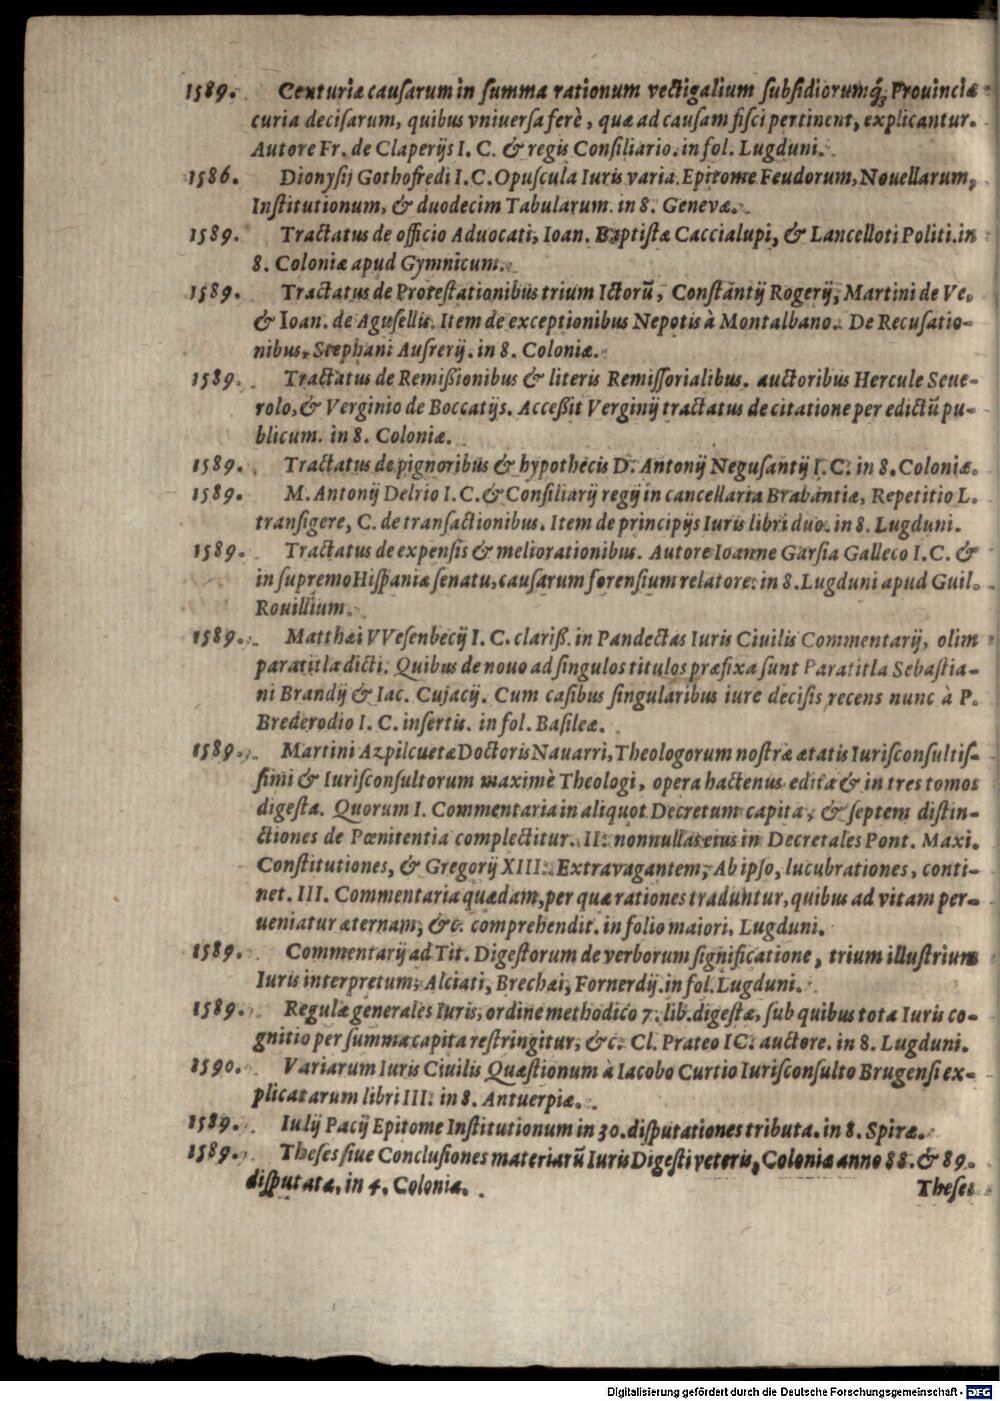 1589. Centuriæ causarum in summa rationum vectigalium subsidiorumq́; Prouinciæ
curia decisarum, quibus vniuersa ferè, quæ ad causam fisci pertinent, explicantur.
Autore Fr. de Claperijs I. C. & regis Consiliario. in fol. Lugduni.
1586. Dionysij Gothofredi I. C. Opuscula Iuris varia. Epitome Feudorum, Nouellarum,
Institutionum, & duodecim Tabularum. in 8. Genevæ.
1589. Tractatus de officio Aduocati, Ioan. Baptistæ Caccialupi, & Lancelloti Politi. in
8. Coloniæ apud Gymnicum.
1589. Tractatus de Protestationibus trium Ictorũ, Constantij Rogerij, Martini de Ve.
& Ioan. de Agusellis. Item de exceptionibus Nepotis à Montalbano. De Recusatio-
nibus, Stephani Aufrerij. in 8. Coloniæ.
1589. Tractatus de Remißionibus & literis Remissorialibus. auctoribus Hercule Seue-
rolo, & Verginio de Boccatijs. Acceßit Verginij tractatus de citatione per edictũ pu-
blicum. in 8. Coloniæ.
1589. Tractatus de pignoribus & hypothecis D. Antonij Negusantij I. C. in 8. Coloniæ.
1589. M. Antonij Delrio I. C. & Consiliarij regij in cancellaria Brabantiæ, Repetitio L.
transigere, C. de transactionibus. Item de principijs Iuris libri duo. in 8. Lugduni.
1589. Tractatus de expensis & meliorationibus. Autore Ioanne Garsia Galleco I. C. &
in supremo Hispaniæ senatu, causarum forensium relatore. in 8. Lugduni apud Guil.
Rouillium.
1589. Matthæi VVesenbecij I. C. clariß. in Pandectas Iuris Ciuilis Commentarij, olim
paratitla dicti. Quibus de nouo ad singulos titulos præfixa sunt Paratitla Sebastia-
ni Brandij & Iac. Cujacij. Cum casibus singularibus iure decisis recens nunc à P.
Brederodio I. C. insertis. in fol. Basileæ.
1589. Martini Azpilcuetæ Doctoris Nauarri, Theologorum nostræ ætatis Iurisconsultis-
simi & Iurisconsultorum maximè Theologi, opera hactenus edita & in tres tomos
digesta. Quorum I. Commentaria in aliquot Decretum capita, & septem distin-
ctiones de Pœnitentia complectitur. II. nonnullas eius in Decretales Pont. Maxi.
Constitutiones, & Gregorij XIII. Extravagantem, Ab ipso, lucubrationes, conti-
net. III. Commentaria quædam, per quæ rationes traduntur, quibus ad vitam per-
ueniatur æternam, &c. comprehendit. in folio maiori, Lugduni.
1589. Commentarij ad Tit. Digestorum de verborum significatione, trium illustrium
Iuris interpretum, Alciati, Brechæi, Fornerdij. in fol. Lugduni.
1589. Regulæ generales Iuris, ordine methodico 7. lib. digestæ, sub quibus tota Iuris co-
gnitio per summa capita restringitur, &c. Cl. Prateo IC. auctore. in 8. Lugduni.
1590. Variarum Iuris Ciuilis Quæstionum à Iacobo Curtio Iurisconsulto Brugensi ex-
plicatarum libri III. in 8. Antuerpiæ.
1589. Iulij Pacij Epitome Institutionum in 30. disputationes tributa. in 8. Spiræ.
1589. Theses siue Conclusiones materiarũ Iuris Digesti veteris, Coloniæ anno 88. & 89.
disputatæ, in 4. Coloniæ.
Theses
Digitalisierung gefördert durch die Deutsche Forschungsgemeinschaft - DFG